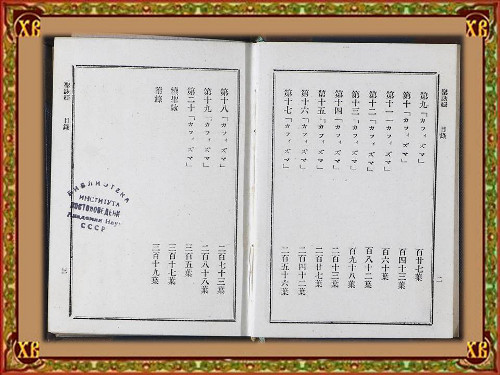 ХВ
ХВ
聖詠經 目錄
二
第九「カフィズマ」 百廿七葉
第十「カフィズマ」 百四十三葉
第十一「カフィズマ」 百六十葉
第十二「カフィズマ」 百八十二葉
第十三「カフィズマ」 百九十八葉
第十四「カフィズマ」 二百十三葉
第十五「カフィズマ」 二百廿七葉
第十六「カフィズマ」 二百四十二葉
第十七「カフィズマ」 二百五十六葉
第十八「カフィズマ」 二百七十三葉
第十九「カフィズマ」 二百八十八葉
第二十「カフィズマ」 三百五葉
續聖詠 三百十七葉
附錄 三百十九葉
聖詠經 目錄
БИБЛИОТЕКА
ИНСТИТУТА
ВОСТОКОВЕДЕНИЯ
Академии Наук
СССР
ХВ
ХВ